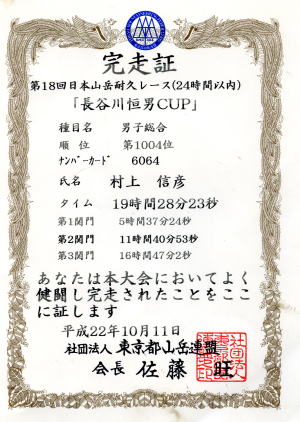 完走証
第18回日本山岳耐久レース(24時間以内)
「長谷川恒男CUP」
種目名 男子総合
順 位 第1004位
ナンバーカード 6064
氏名 村上 信彦
タイム 19時間28分23秒
第1関門 5時間37分24秒
第2関門 11時間40分53秒
第3関門 16時間47分2秒
あなたは本大会においてよく
健闘し完走されたことをここ
に証します
平成22年10月11日
社団法人 東京都山岳連盟
会長 佐藤 旺